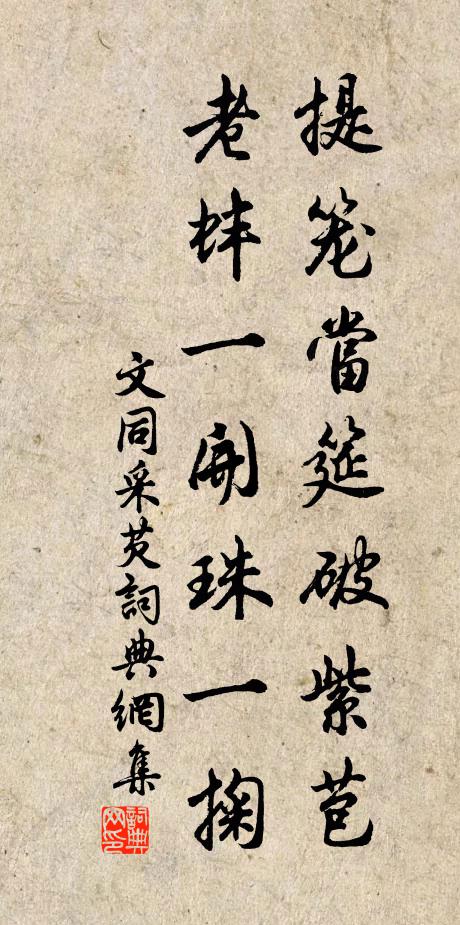 提笼當筵破紫苞
老蚌一開珠一掬
文同采芡詞典網集
詞典網印